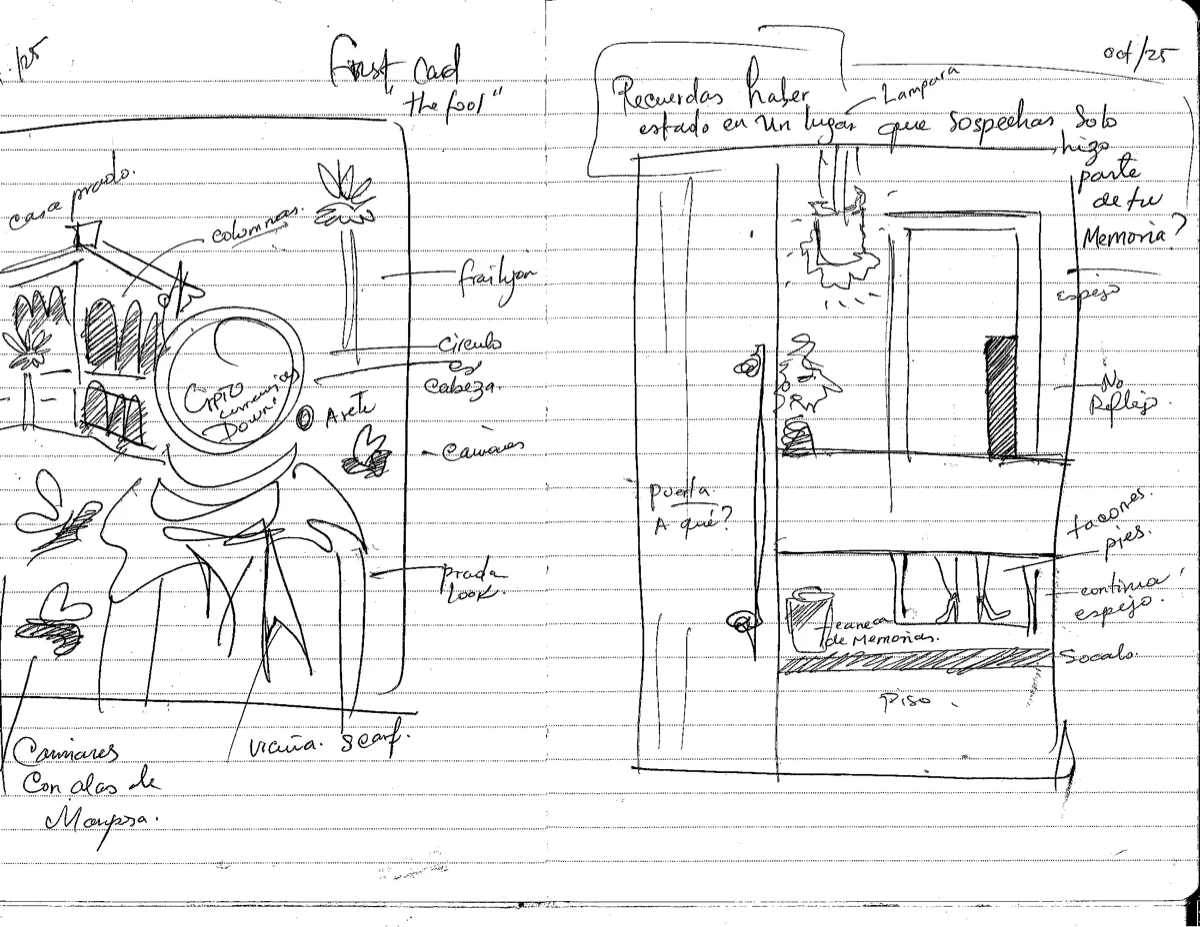 . /25
First Cad
"the fool"
casa prado.
columnas.
frailyon
circulo
es
cabeza.
Cripto
currencies
Down!
Arete
prada
look.
vicuña. scarf.
Con alas de
Mariposa.
oct/25
Recuerdas haber
Lampara
estado en un lugar que sospechas solo
hizo
parte
de tu
Memoria?
espejo
No
Reflejo.
puerta
A qué?
tacones.
pies.
continua
espejo.
caneca
de Memorias.
Socalo.
Piso.